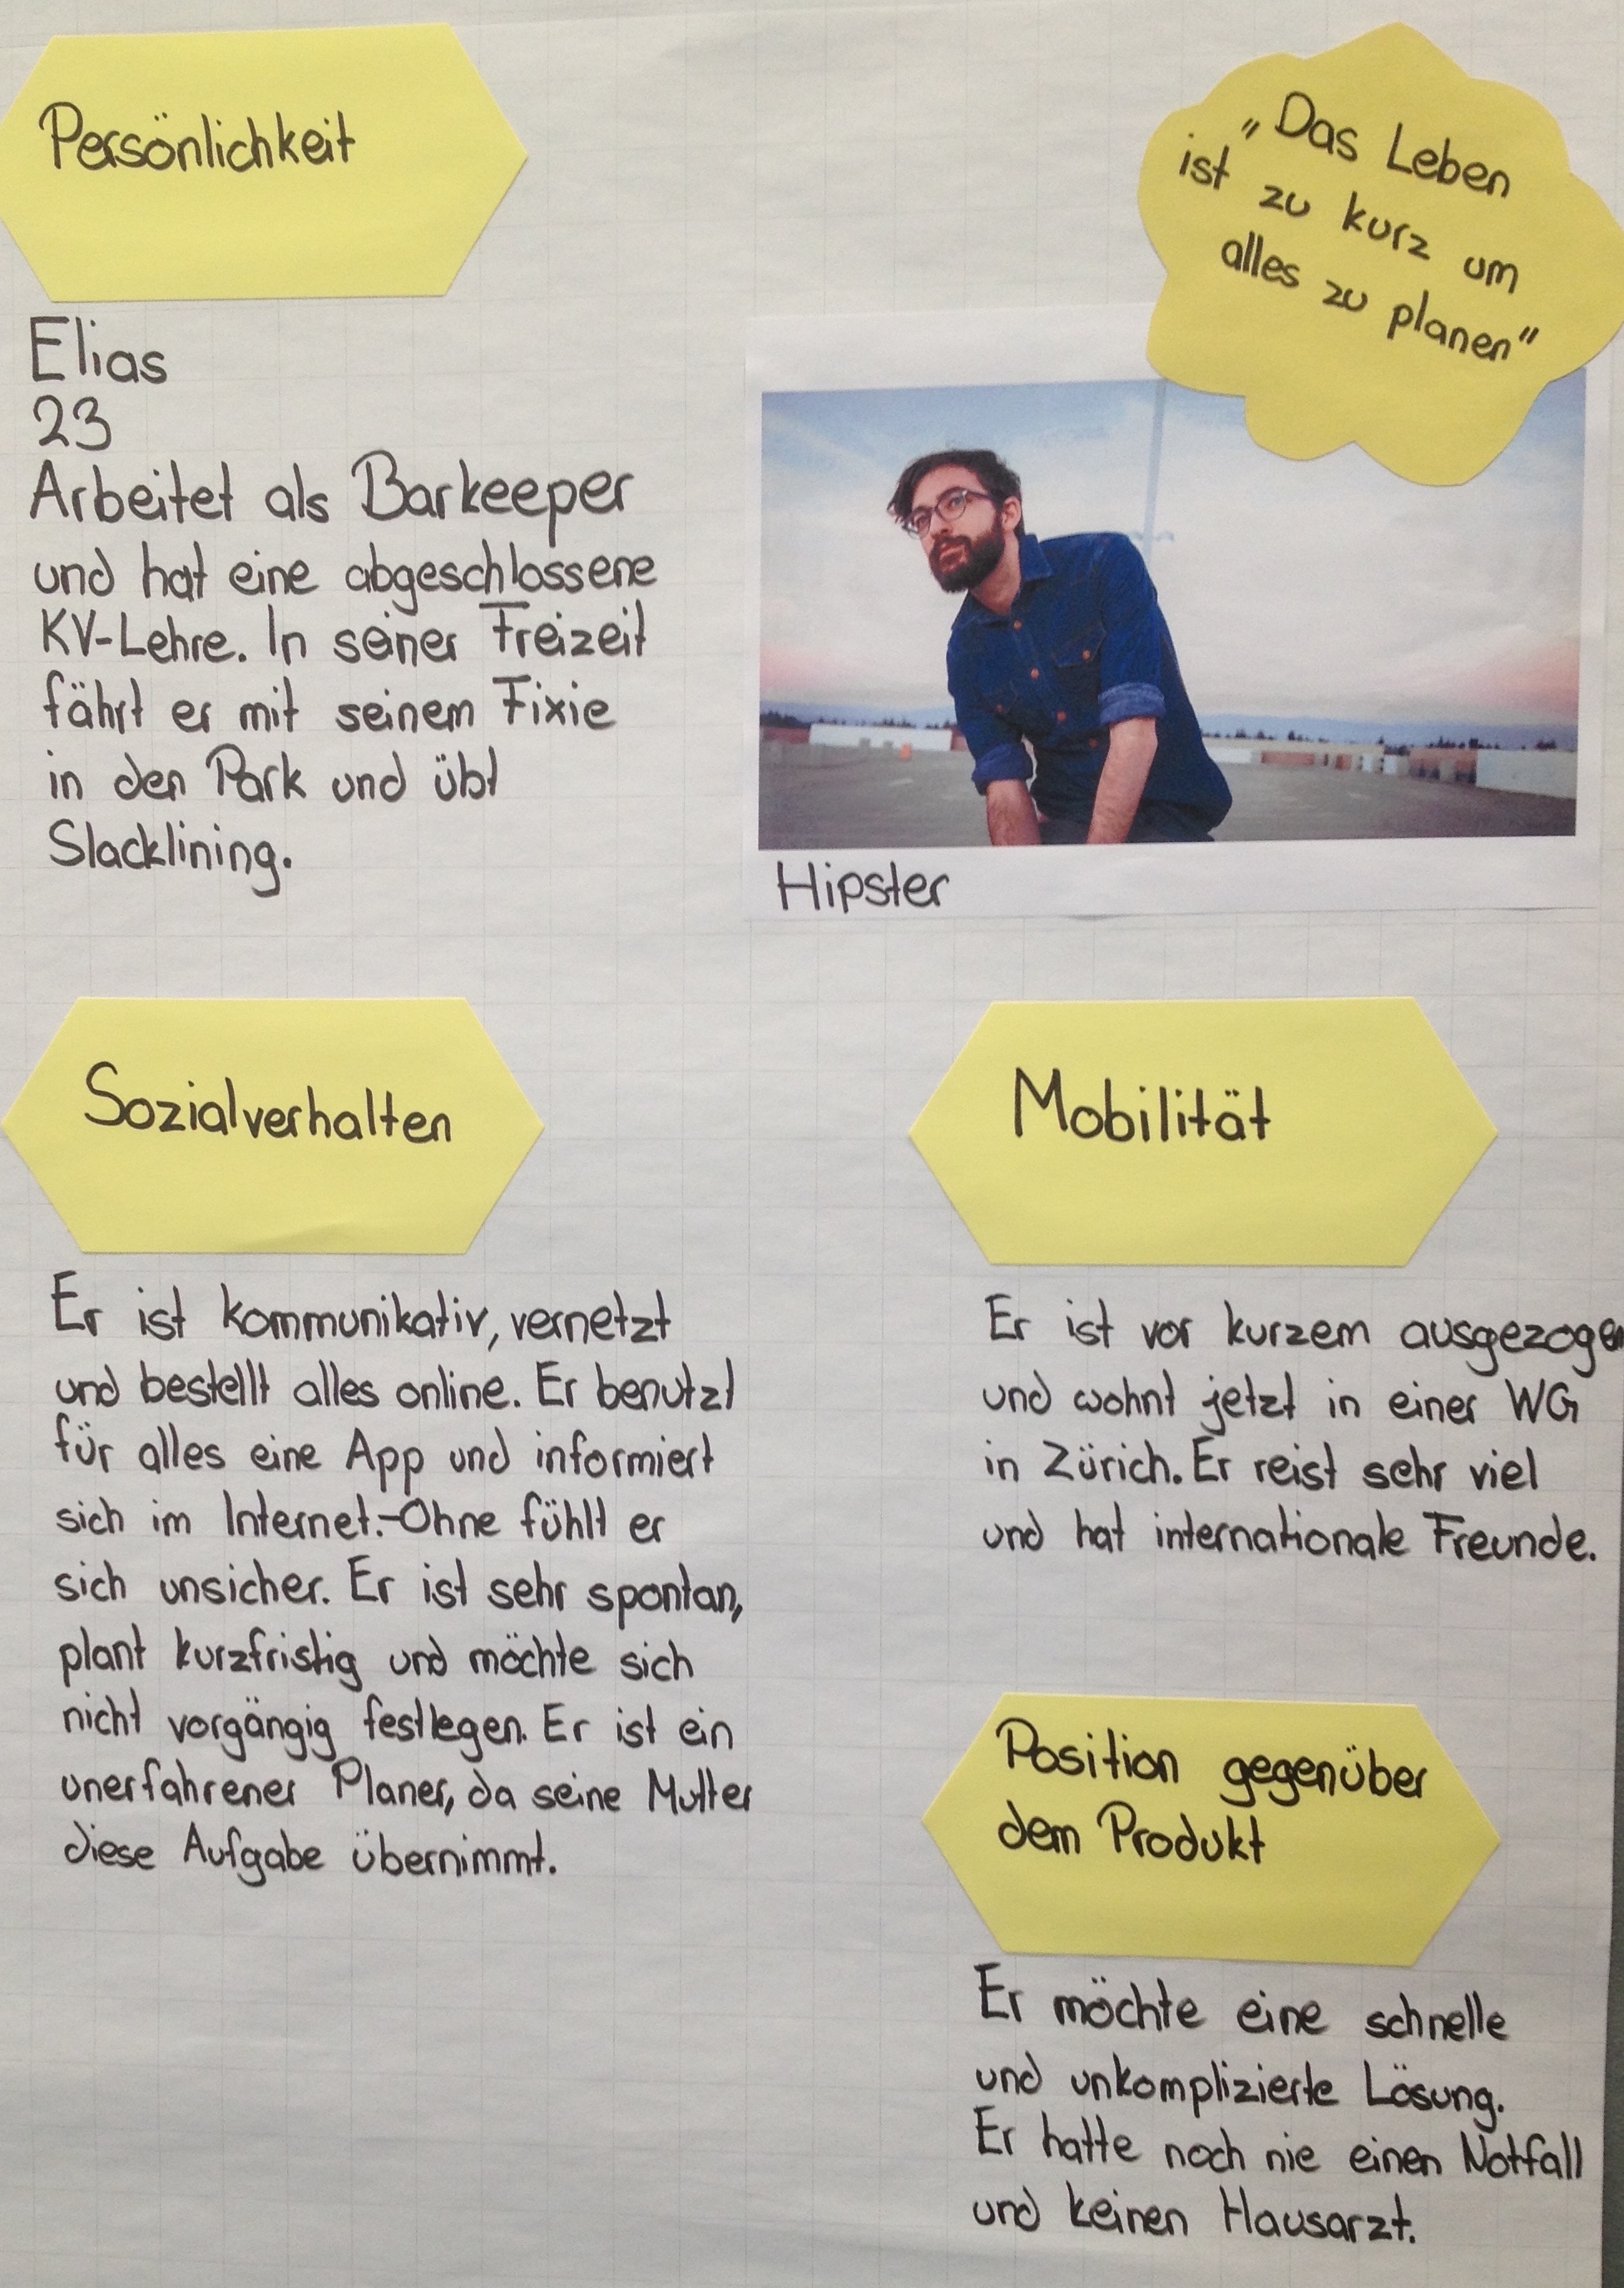 Persönlichkeit
Elias
23
Arbeitet als Barkeeper
und hat eine abgeschlossene
KV-Lehre. In seiner Freizeit
fährt er mit seinem Fixie
in den Park und übt
Slacklining.
„Das Leben
ist zu kurz um
alles zu planen"
Hipster
Sozialverhalten
Er ist kommunikativ, vernetzt
und bestellt alles online. Er benutzt
für alles eine App und informiert
sich im Internet.-Ohne fühlt er
sich unsicher. Er ist sehr spontan,
plant kurzfristig und möchte sich
nicht vorgängig festlegen. Er ist ein
unerfahrener Planer, da seine Mutter
diese Aufgabe übernimmt.
Mobilität
Er ist vor kurzem ausgezogen
und wohnt jetzt in einer WG
in Zürich. Er reist sehr viel
und hat internationale Freunde.
Position gegenüber
dem Produkt
Er möchte eine schnelle
und unkomplizierte Lösung.
Er hatte noch nie einen Notfall
und keinen Hausarzt.